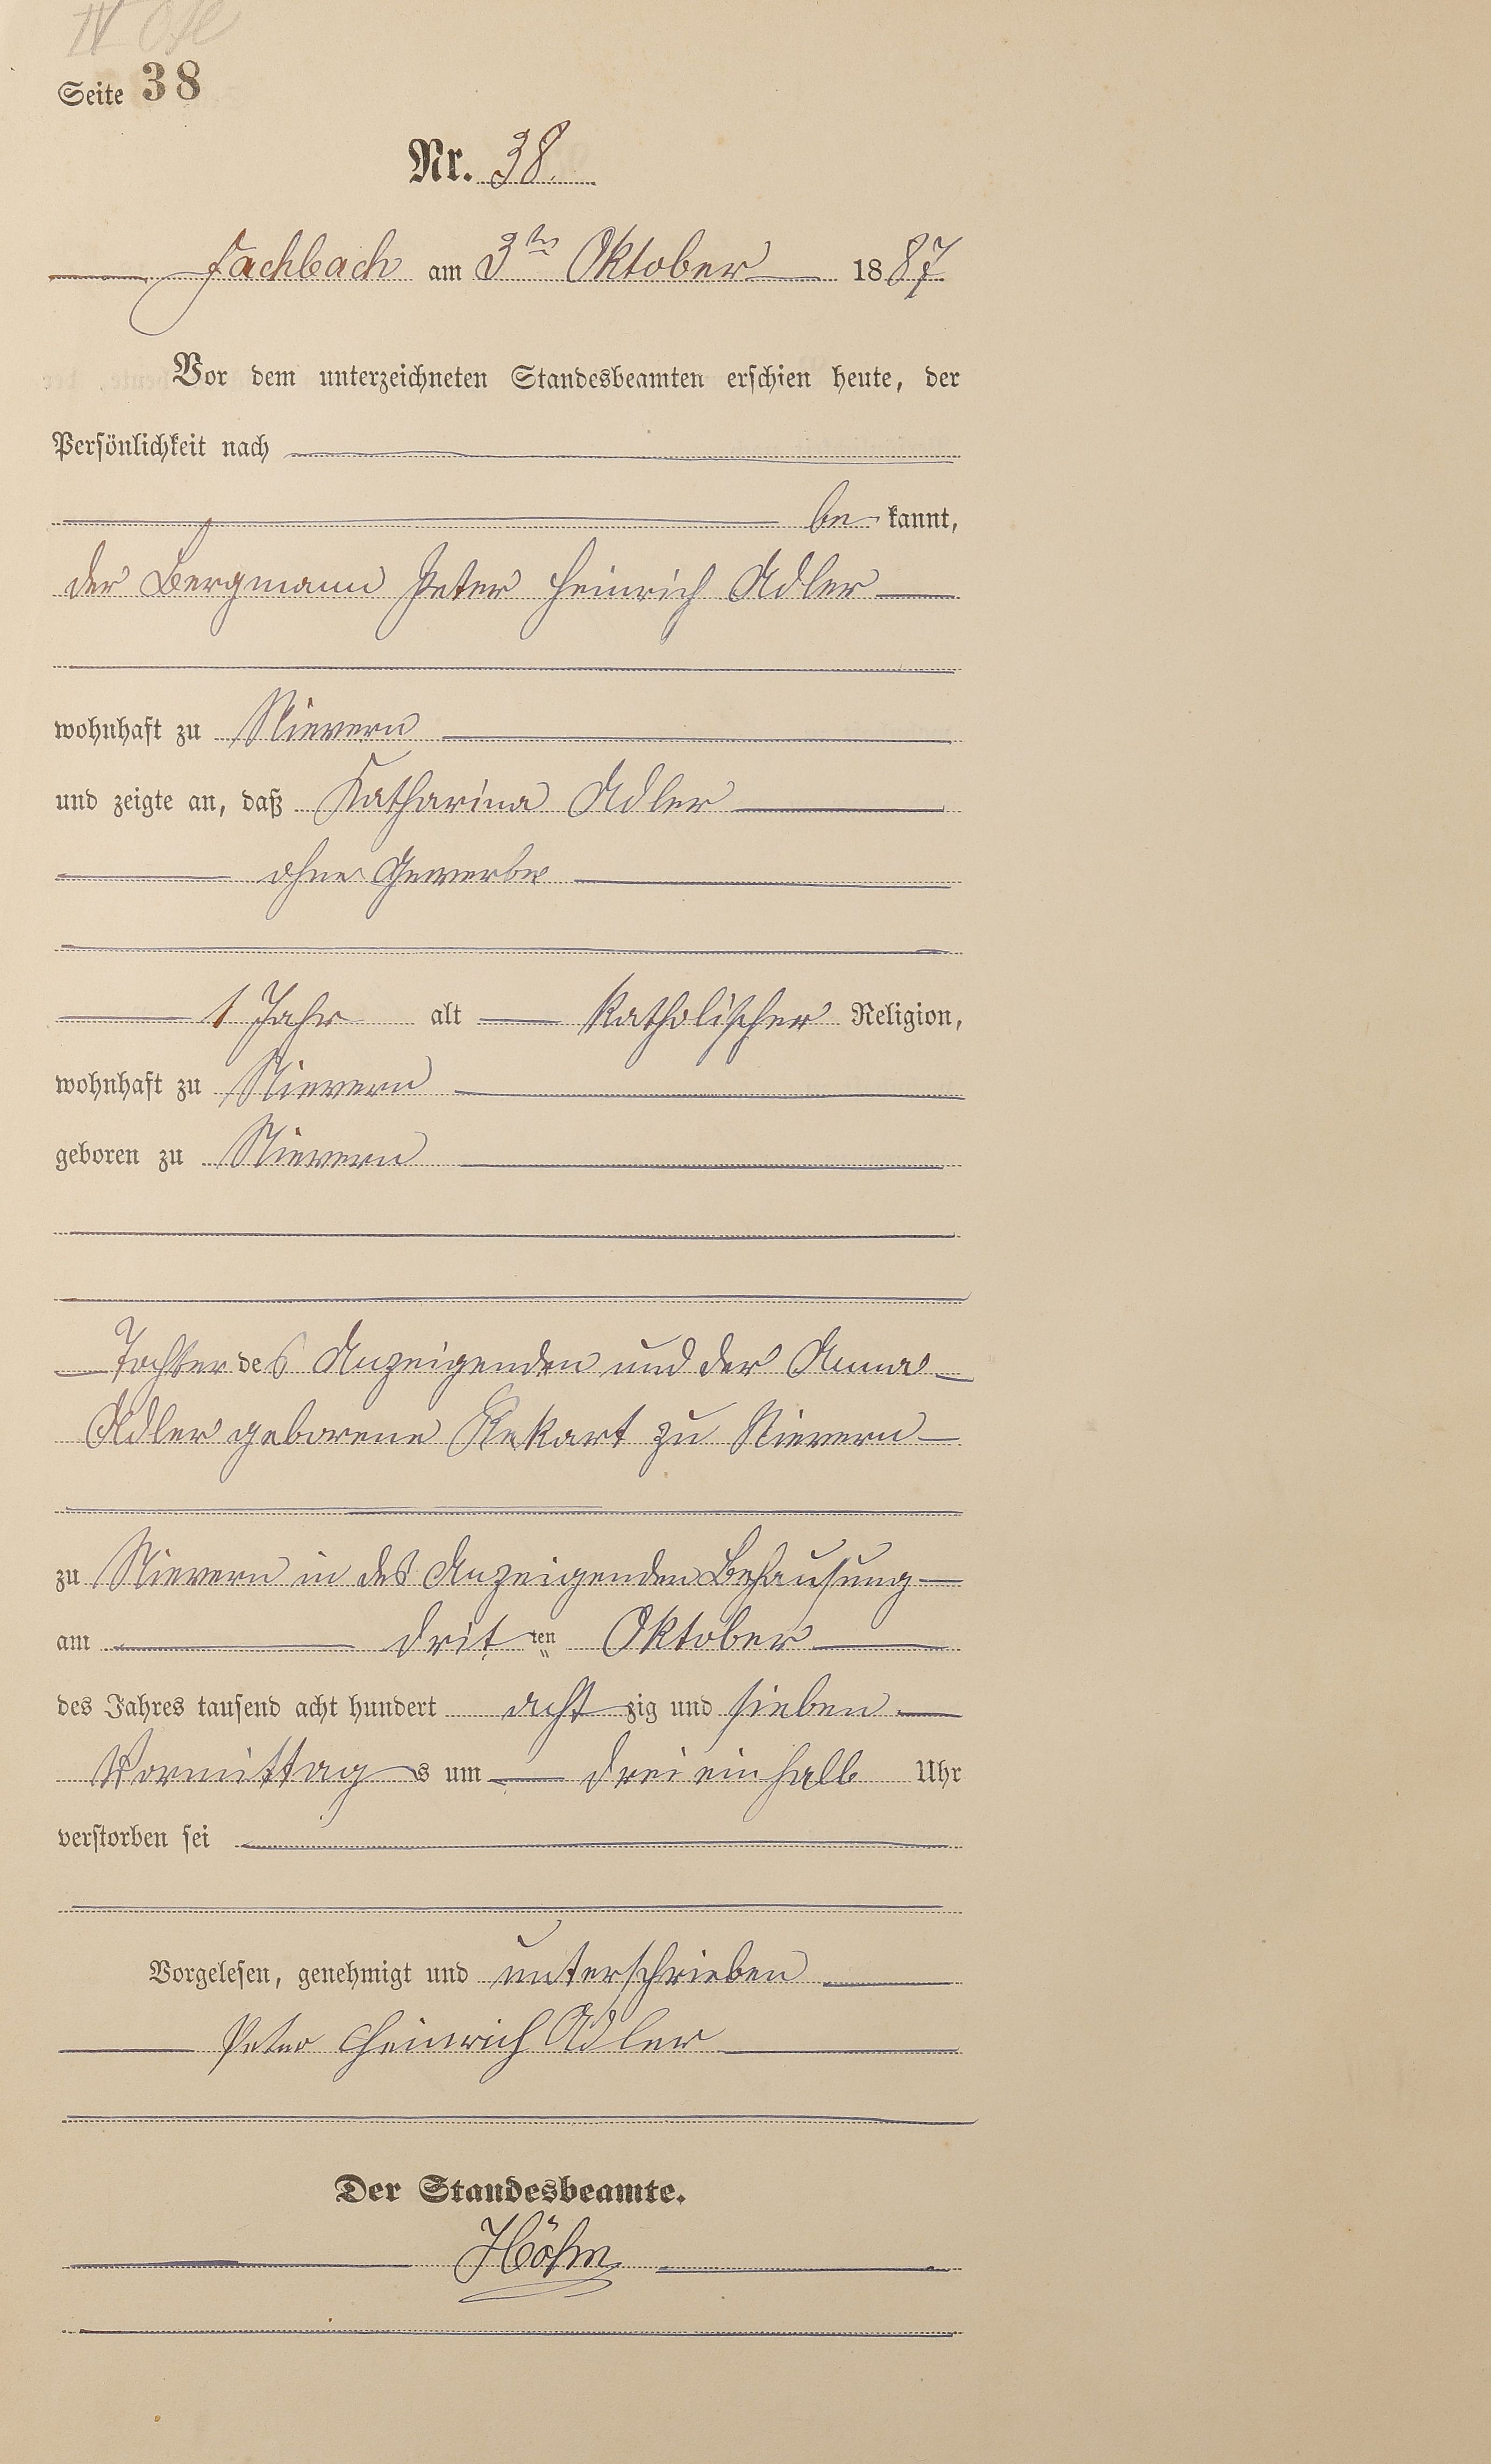 Seite 38
Nr. 38.
Fachbach am 3ten Oktober 1887
Vor dem unterzeichneten Standesbeamten erschien heute, der
Persönlichkeit nach
be kannt,
der Bergmann Peter Heinrich Adler
wohnhaft zu Nievern
und zeigte an, daß Katharina Adler
ohne Gewerbe
1 Jahr alt katholischer Religion,
wohnhaft zu Nievern
geboren zu Nievern
Tochter des Anzeigenden und der Anna
Adler geborene Ekart zu Nievern
zu Nievern in des Anzeigenden Behausung
am drit ten Oktober
des Jahres tausend acht hundert acht zig und sieben
Vormittag s um drei ein halb Uhr
verstorben sei
Vorgelesen, genehmigt und unterschrieben
Peter Heinrich Adler
Der Standesbeamte.
Höhn